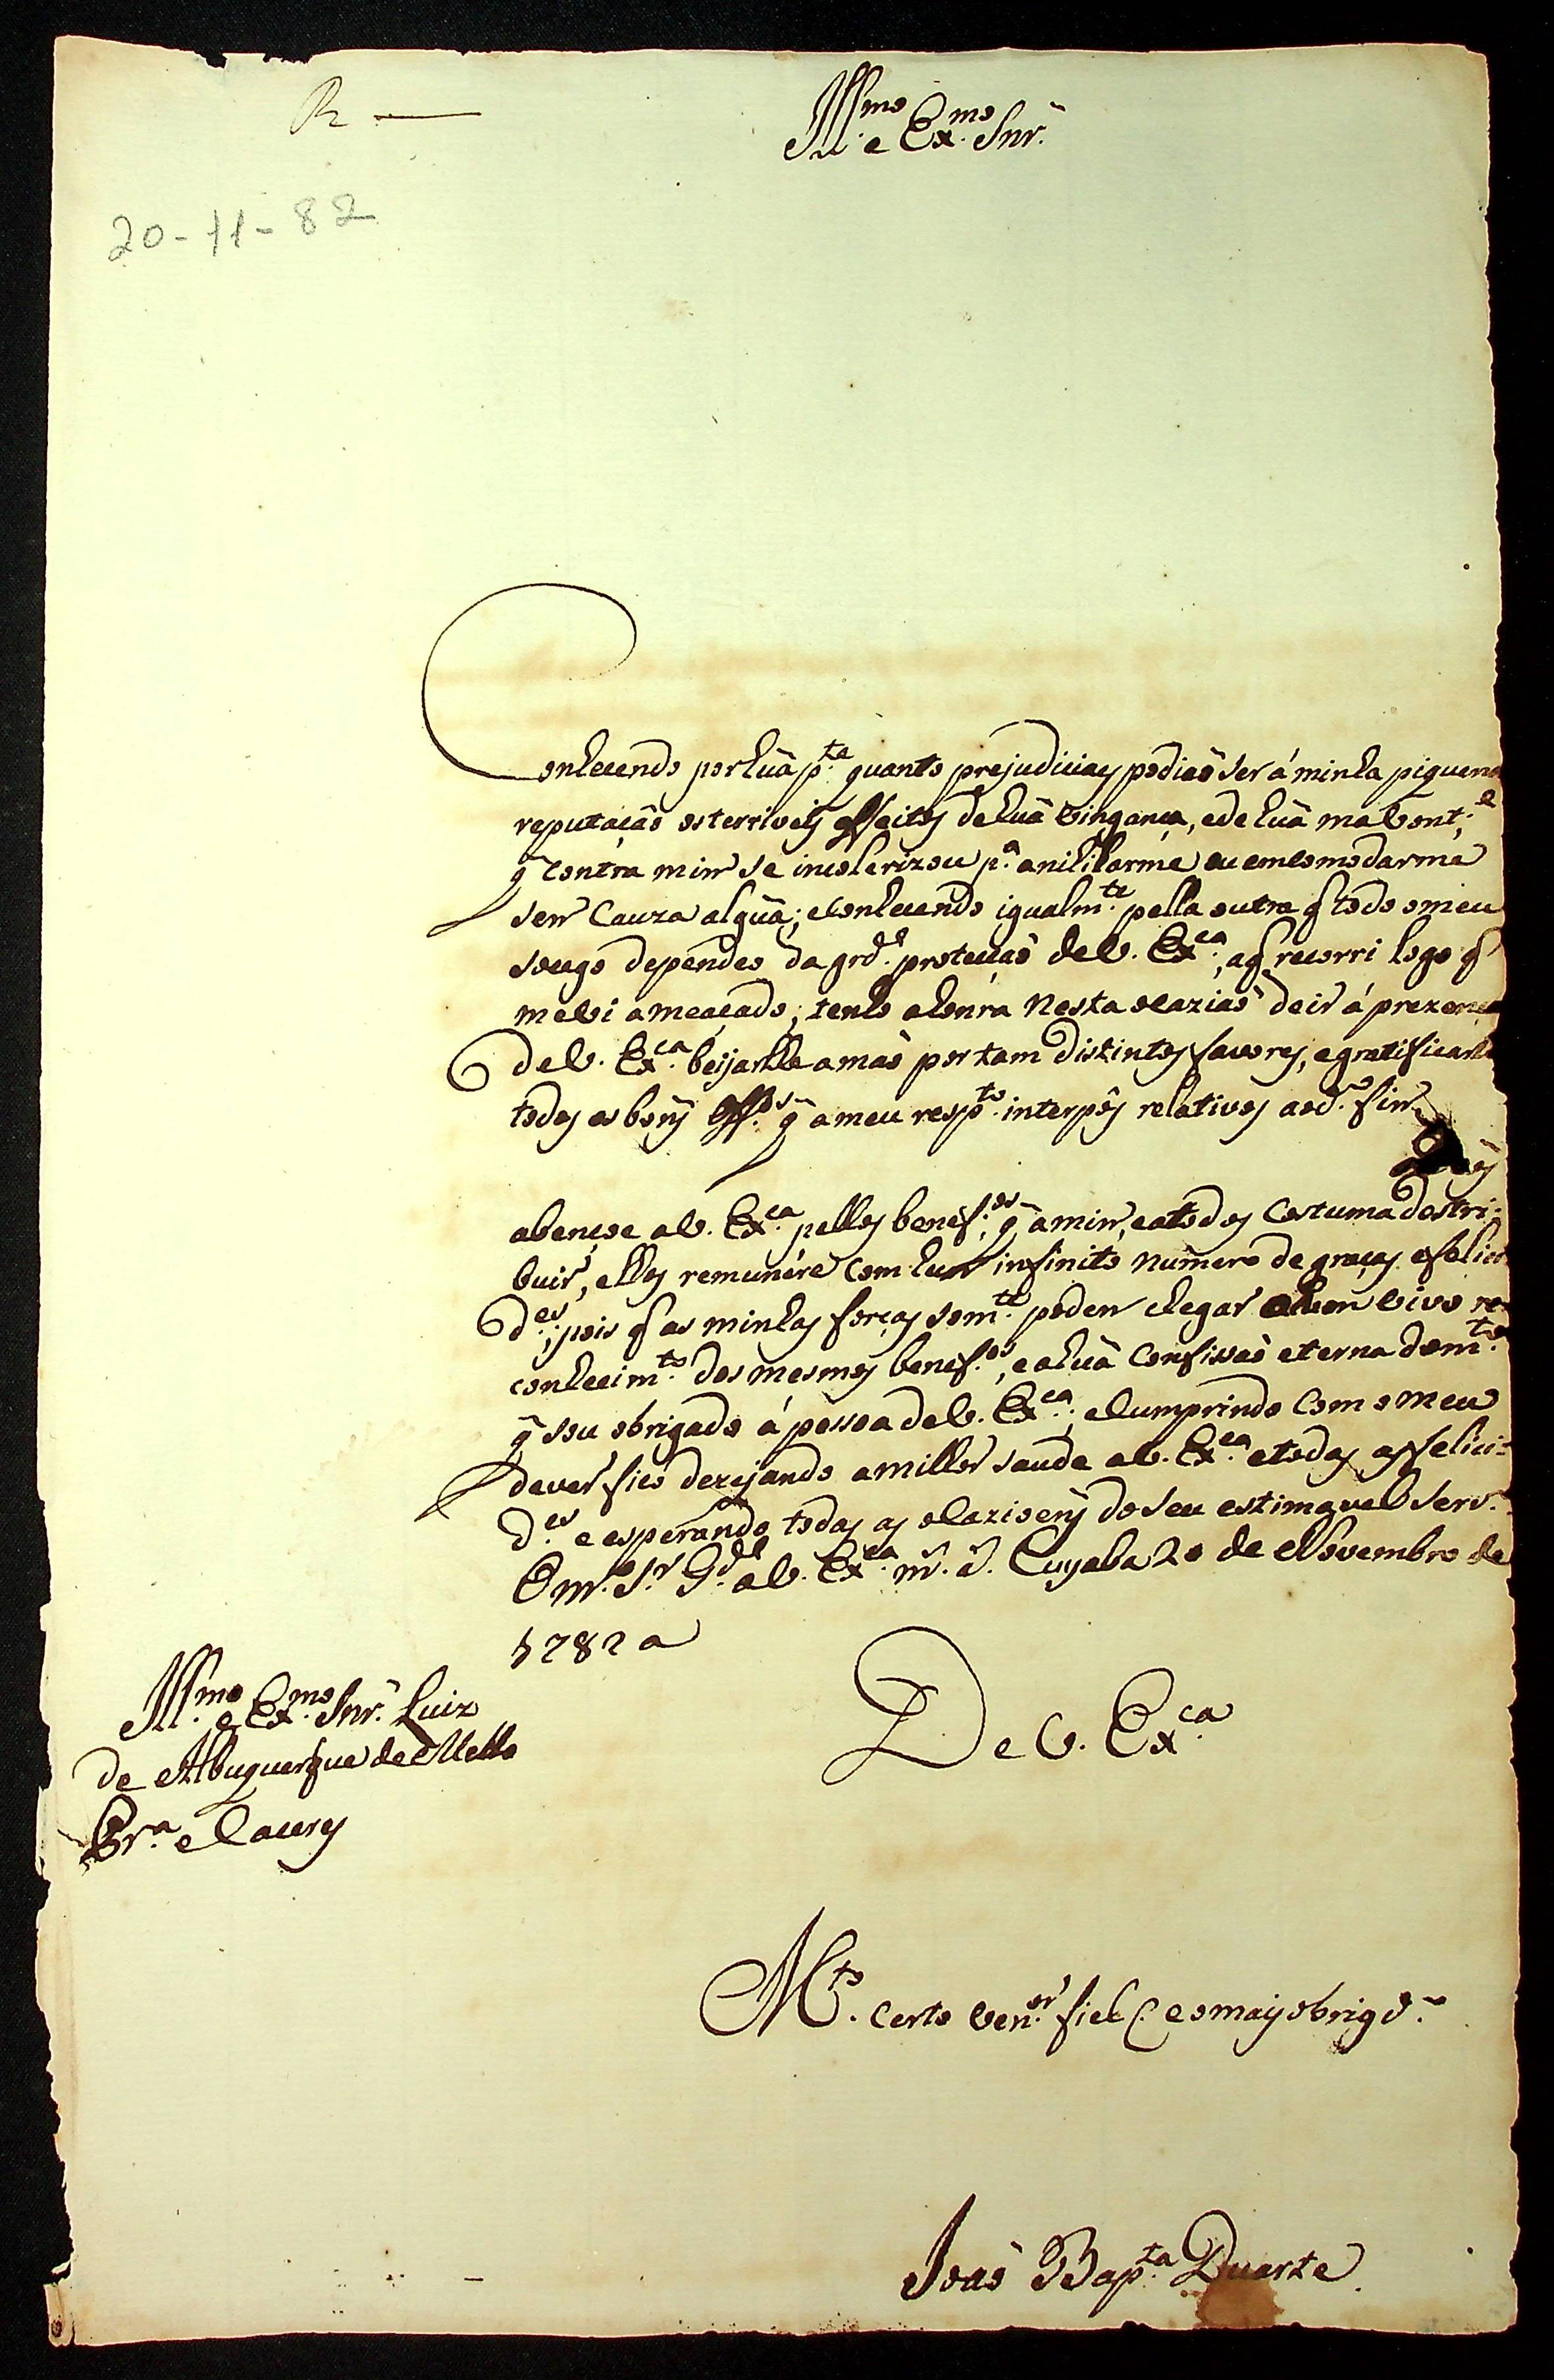 R.
Ill.mo e Ex.mo Snr.
20-11-82
Conhecendo por huã p.te quanto prejudiciaes podiaõ ser á minha piquena
reputaçaõ os terriveis effeitos de huã vingança, e de huã má vont.e
q̃ contra mim se incolerizou p.a anihilarme ou emcomodarme
sem cauza algũa; e conhecendo igualm.te pella outra q̃ todo o meu
socego dependeo da grd.e protecçaõ de V. Ex.ca, a q̃ recorri logo q̃
me vi ameaçado; tenho a honra nesta ocaziaõ de ir á prezença
de V. Ex.ca beijarlhe a maõ por tam distintos favores, e gratificarlhe
todos os bons off.os q̃ a meu resp.to interpôs relativos ao d.o fim.
Deos
abençoe a V. Ex.ca pellos benef.os q̃ a mim, e a todos costuma destri-
buir, e lhos remunére com hum infinito numero de graças e felici
d.es; pois q̃ as minhas forças som.te podem chegar a hum vivo re-
conhecim.to dos mesmos benef.os, e a huã confissaõ eterna do m.to
q̃ sou obrigado á pessoa de V. Ex.ca; e cumprindo com o meu
dever fico dezejando a milhor saude a V. Ex.ca e todas as felici-
d.es e esperando todas as ocazioens do seu estimavel serv.o
O m.o S.r G.de a V. Ex.ca m.s a.s Cuyaba 20 de Novembro de
1782 a
Ill.mo e Ex.mo Snr. Luiz
de Albuquerque de Mello
Pr.a e Caceres
De V. Ex.ca
M.to certo ven.or fiel C. e o mais obrigd.o
Joaõ Bap.ta Duarte